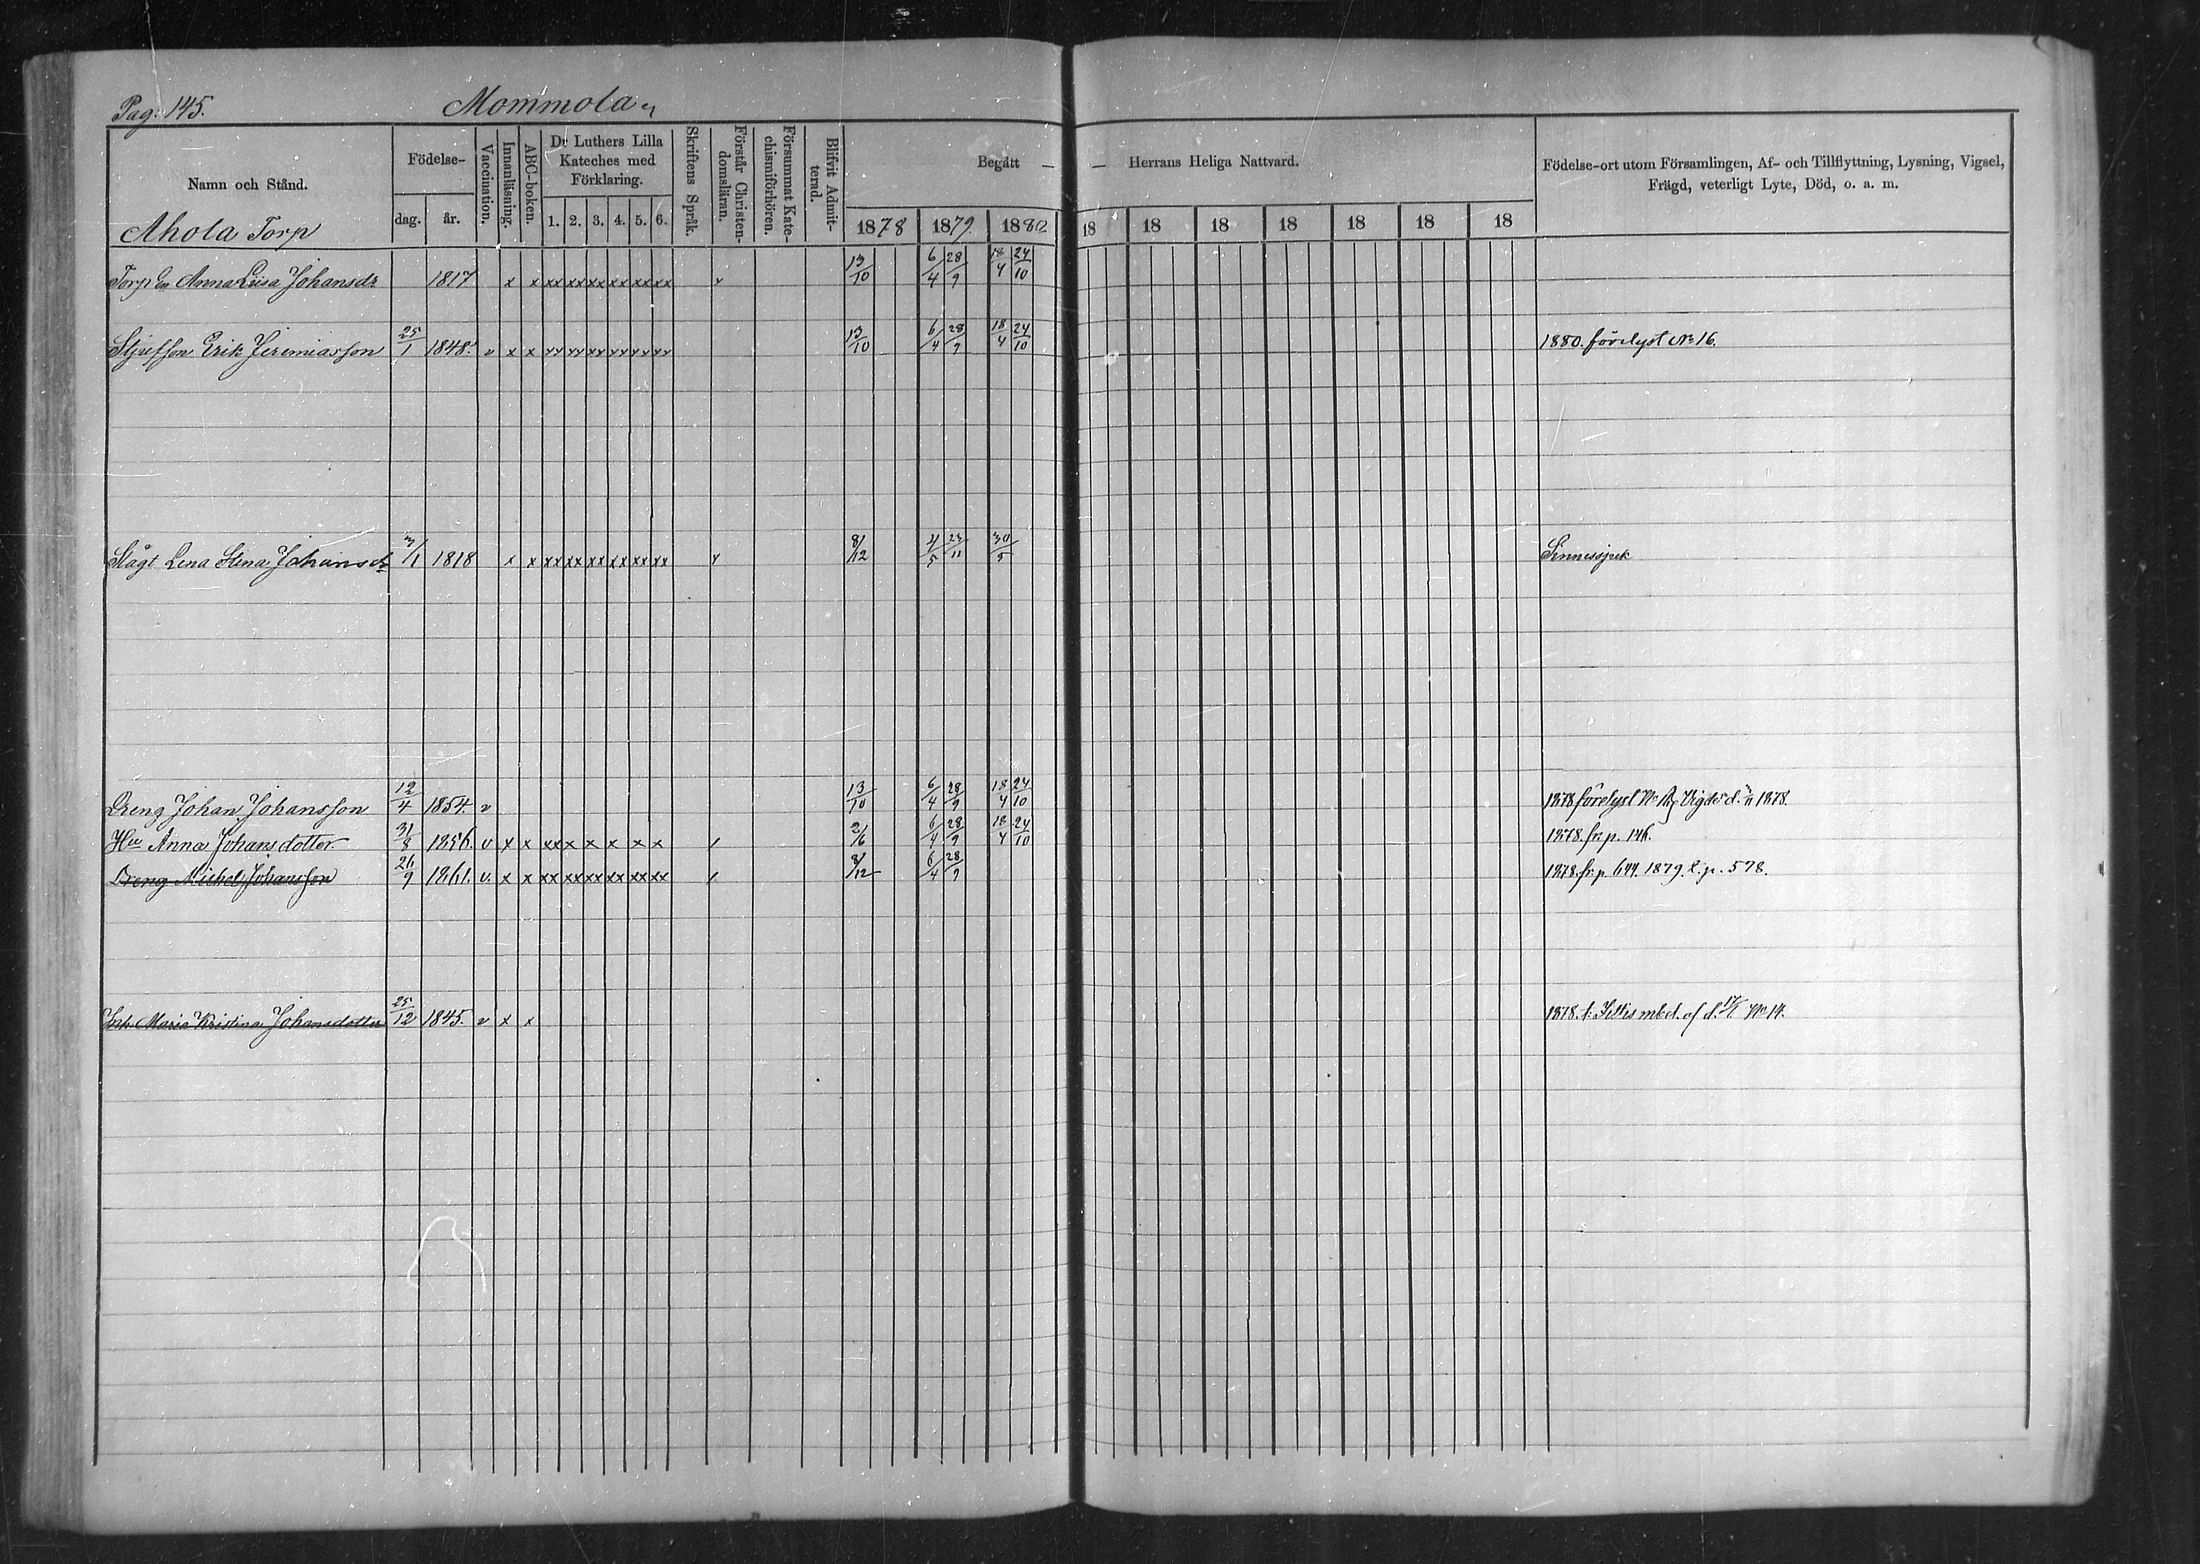 Pag. 145. Mommola
Namn och Stånd. Födelse- dag. år. Vaccination. Innanläsning. ABC-boken. Dr Luthers Lilla Kateches med Förklaring. 1. 2. 3. 4. 5. 6. Skriftens Språk. Förstår Christendomsläran. Försummat Katechismiförhören. Blifvit Admitterad. Begått — — Herrans Heliga Nattvard. Födelse-ort utom Församlingen, Af- och Tillflyttning, Lysning, Vigsel,
Frägd, veterligt Lyte, Död, o. a. m.
Ahola Torp 1878 1879 1880 18 18 18 18 18 18 18
Torp En Anna Lisa Johansdr 1817 x x xx xx xx xx xx xx 13/10 6/4 28/9 18/4 24/10
Styfson Erik Jeremiasson 25/1 1848. v x x xx xx xx xx xx xx 13/10 6/4 28/9 18/4 24/10 1880. förelyst No 16.
Lena Stina Johansdr 1818 x x xx xx xx xx xx xx 8/12 4/5 23/11 30/5 Sinnessjuk
Dreng Johan Johansson 12/4 1854. v 13/10 6/4 28/9 18/4 24/10 1878 förelyst No Vigde d. 1878.
Hu Anna Johansdotter 31/8 1856. v x x xx x x x x x 2/6 6/4 28/9 18/4 24/10 1878. fr. p. 146.
Dreng Michel Johansson 26/9 1861. v. x x xx xx xx xx xx xx 8/12 6/4 28/9 1878. fr. p. 644. 1879. t. p. 578.
Maria Kristina Johansdotter 25/12 1845. v x x 1878. t. mbd. af d. No 14.